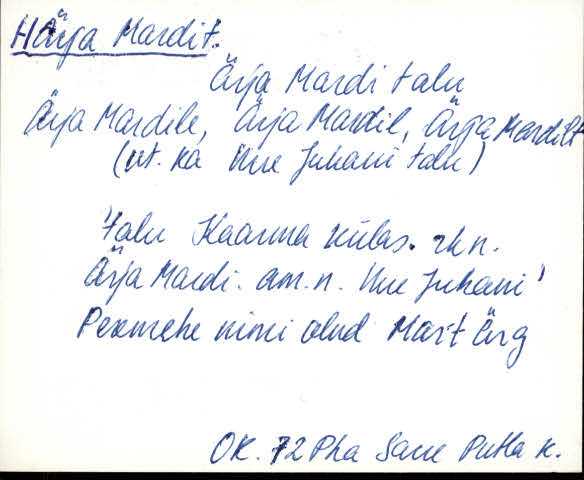 Härja Mardi t.
Ärja Mardi talu
Ärja Mardile, Ärja Mardil, Ärja Mardilt
(vt. ka Uue Juhani talu)
Talu Kaarma külas. rkn.
Ärja Mardi. am. n. Uue Juhani
Peremehe nimi olnud Mart Ärg
OK. 72 Pha Saue Putla k.